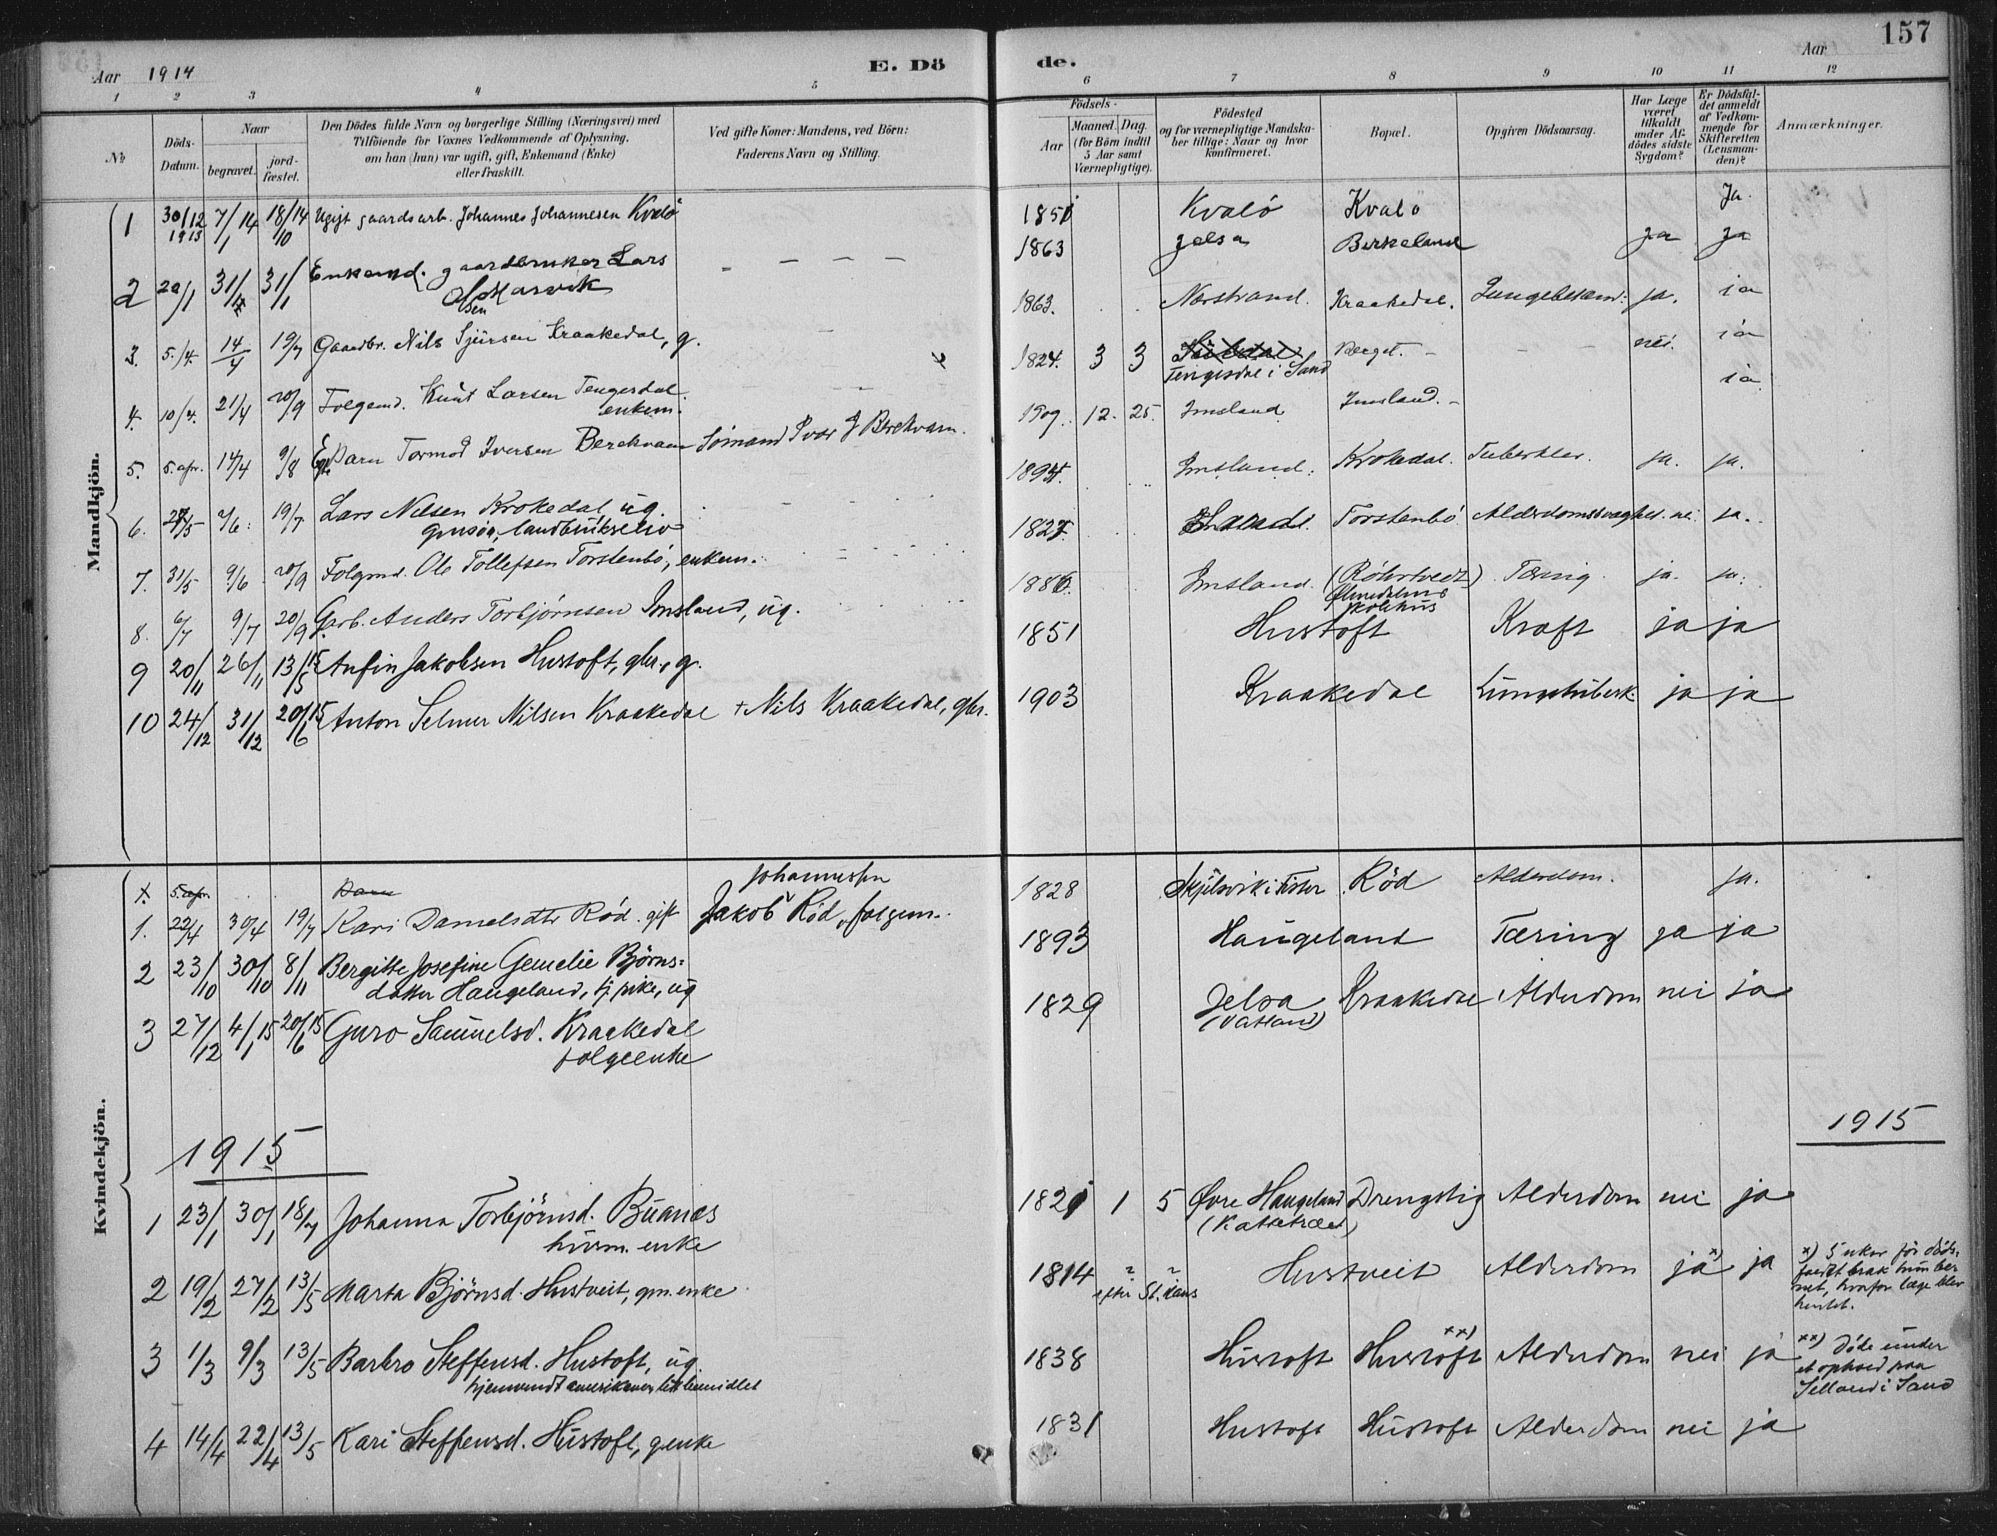 157
Aar 1914
E. Dö
de.
Aar
1 2 3 4 5 6 7 8 9 10 11 12
№
Döds-
Datum.
Naar
begravet.
jord-
fæstet.
Den Dödes fulde Navn og borgerlige Stilling (Næringsvei) med
Tilföiende for Voxnes Vedkommende af Oplysning,
om han (hun) var ugift, gift, Enkemand (Enke)
eller fraskilt.
Ved gifte Koner: Mandens, ved Börn:
Faderens Navn og Stilling.
Födsels-
Aar
Maaned. Dag.
(for Börn indtil
5 Aar samt
Værnepligtige).
Födested
og for værnepligtige Mandska-
ber tillige: Naar og hvor
konfirmeret.
Bopæl.
Opgiven Dödsaarsag.
Har Læge
været
tilkaldt
under Af-
dödes sidste
Sygdom?
Er Dödsfal-
det anmeldt
af Vedkom-
mende for
Skifteretten
(Lensman-
den)?
Anmærkninger.
Mandkjön.
1 30/12 1913 7/1 14 18/10 14 Ugift gaardsarb. Johannes Johannesen Kvalö 1851 Kvalö Kvalö Ja.
2 20/1 31/1 31/1 Enkemd. gaardbruker Lars
Olsen Marvik 1863 Jelsa Birkeland ja ja
3. 5./4. 14/4 19/7 Gaardbr. Nils Sjursen Kraakedal, g. 1863. Nærstrand. Kraakedal. Lungebetænd. ja. ja
4. 10/4. 21/4 20/9 Folgemd. Knut Larsen Tengesdal
enkem. 1824. 3 3 Tengesdal i Sand Berget. nei. ja
5. 5. apr. 14/4 9/8 Egte Barn Tormod Iversen Berekvam Sömand Ivar J Berekvam. 1909. 12. 25. Imsland Imsland. ja.
6. 27/5 2/6. 19/7 Lars Nilsen Krokedal, ug.
gmsön, landbrukselev 1894. Imsland. Krokedal. Tuberkler. ja. ja.
7. 31/5 9/6 20/9 Folgmd. Ole Tollefsen Torstenbö, enkem. 1827. Torstenbö Alderdomssvaghet. nei ja.
8. 6/7 9/7 20/9 Garb. Anders Torbjörnsen Imsland, ug. 1886. Imsland. (Röhrtvedt)
Ölmedalens
skolehus Tæring. ja. ja.
9 20/11 26/11 13/5 15 Anfin Jakobsen Hustoft, gbr., g. 1851 Hustoft Kraft ja ja
10 24/12 31/12 20/6 15 Anton Selmer Nilsen Kraakedal + Nils Kraakedal, gbr. 1903 Kraakedal Lungetuberk. ja ja
Kvindekjön.
1. 5. apr. Barn
1. 22/4 30/4 19/7 Kari Danielsdtr Röd. gift Jakob Johannessen Röd, folgem. 1828 Skjilsvik i Fister Röd Alderdom. ja.
2 23/10 30/10 8/11 Bergitte Josefine Gemelie Björns-
datter Haugeland, tj.pike, ug 1893 Haugeland Tæring ja ja
3 27/12 4/1 15 20/6 15 Guro Samuelsd. Kraakedal
folgeenke 1829 Jelsa
(Vatland) Kraakedal Alderdom nei ja
1915
1915
1 23/1 30/1 18/7 Johanna Torbjörnsd. Buanes
husm. enke 1821 1 5 Øvre Haugeland
(Kattetræet) Drengstig Alderdom nei ja
2 19/2 27/2 13/5 Marta Björnsd. Hustveit, gm.enke 1814 ?
efter St. Hans ? Hustveit Alderdom ja x) ja x) 5 uker för döds-
faldet brak hun ber
net, hvorfor læge blev
hentet.
3 1/3 9/3 13/5 Barbro Steffensd. Hustoft, ug.
hjemvendt amerikaner 1838 Hustoft Hustoft xx) Alderdom nei ja xx) Döde under
et ophold paa
Selland i Sand
4 14/4 22/4 13/5 Kari Steffensd. Hustoft, genke 1831 Hustoft Hustoft Alderdom nei ja